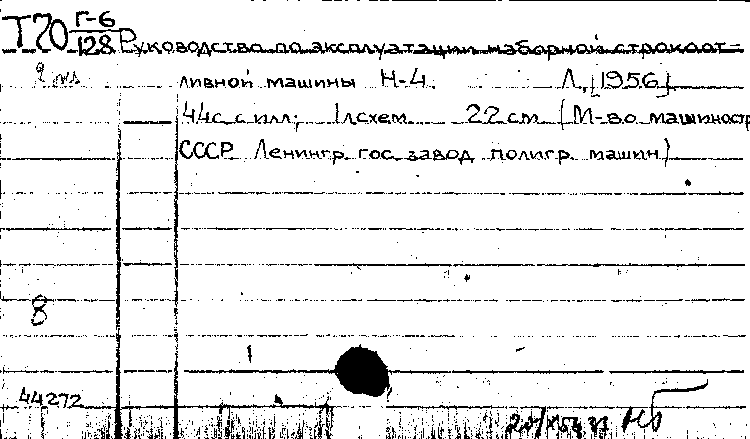 Т70 Г-6
128 Руководство по эксплуатации наборной строкоот-
ливной машины Н-4. Л., [1956].
44с. с илл; 1л.схем. 22 см. (М-во машиностр
СССР. Ленингр. гос. завод полигр. машин)
8
44272